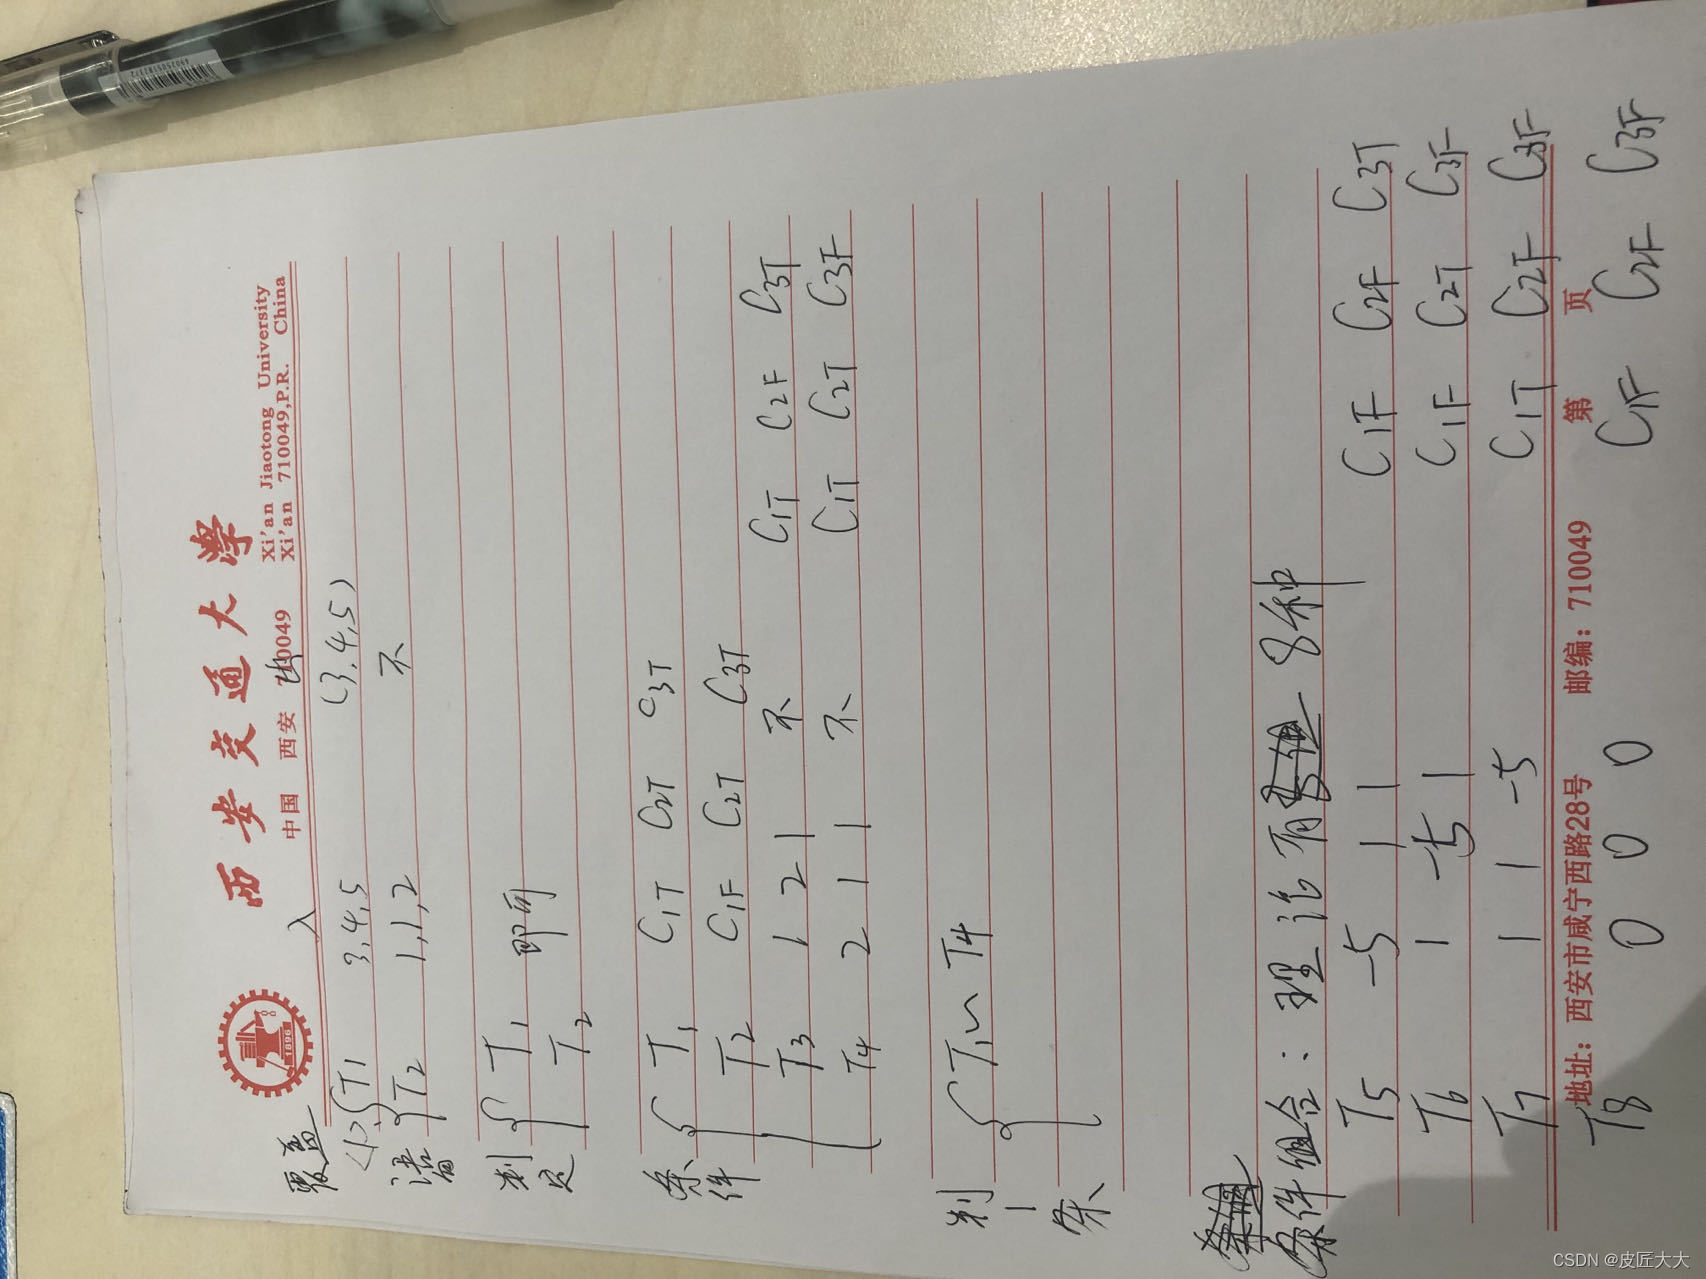 西安交通大学
中国 西安 710049
Xi'an Jiaotong University
Xi'an 710049,P.R. China
覆盖 入 出
<1> T1 3,4,5 (3,4,5)
语句 T2 1,1,2 不
判定 T1 即可
T2
条件 T1 C1T C2T C3T
T2 C1F C2T C3T
T3 1 2 1 不 C1T C2F C3T
T4 2 1 1 不 C1T C2T C3F
判一条 T1~T4
条件组合：理论有 8种
T5 -5 1 1 C1F C2F C3T
T6 1 -5 1 C1F C2T C3F
T7 1 1 -5 C1T C2F C3F
地址：西安市咸宁西路28号 邮编：710049 第 页
T8 0 0 0 C1F C2F C3F
1896
4902505182372
CSDN @皮匠大大